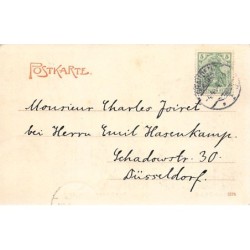 POSTKARTE.
5
Monsieur Charles Joiret
bei Herrn Emil Hasenkamp.
Schadowstr. 30.
Düsseldorf.